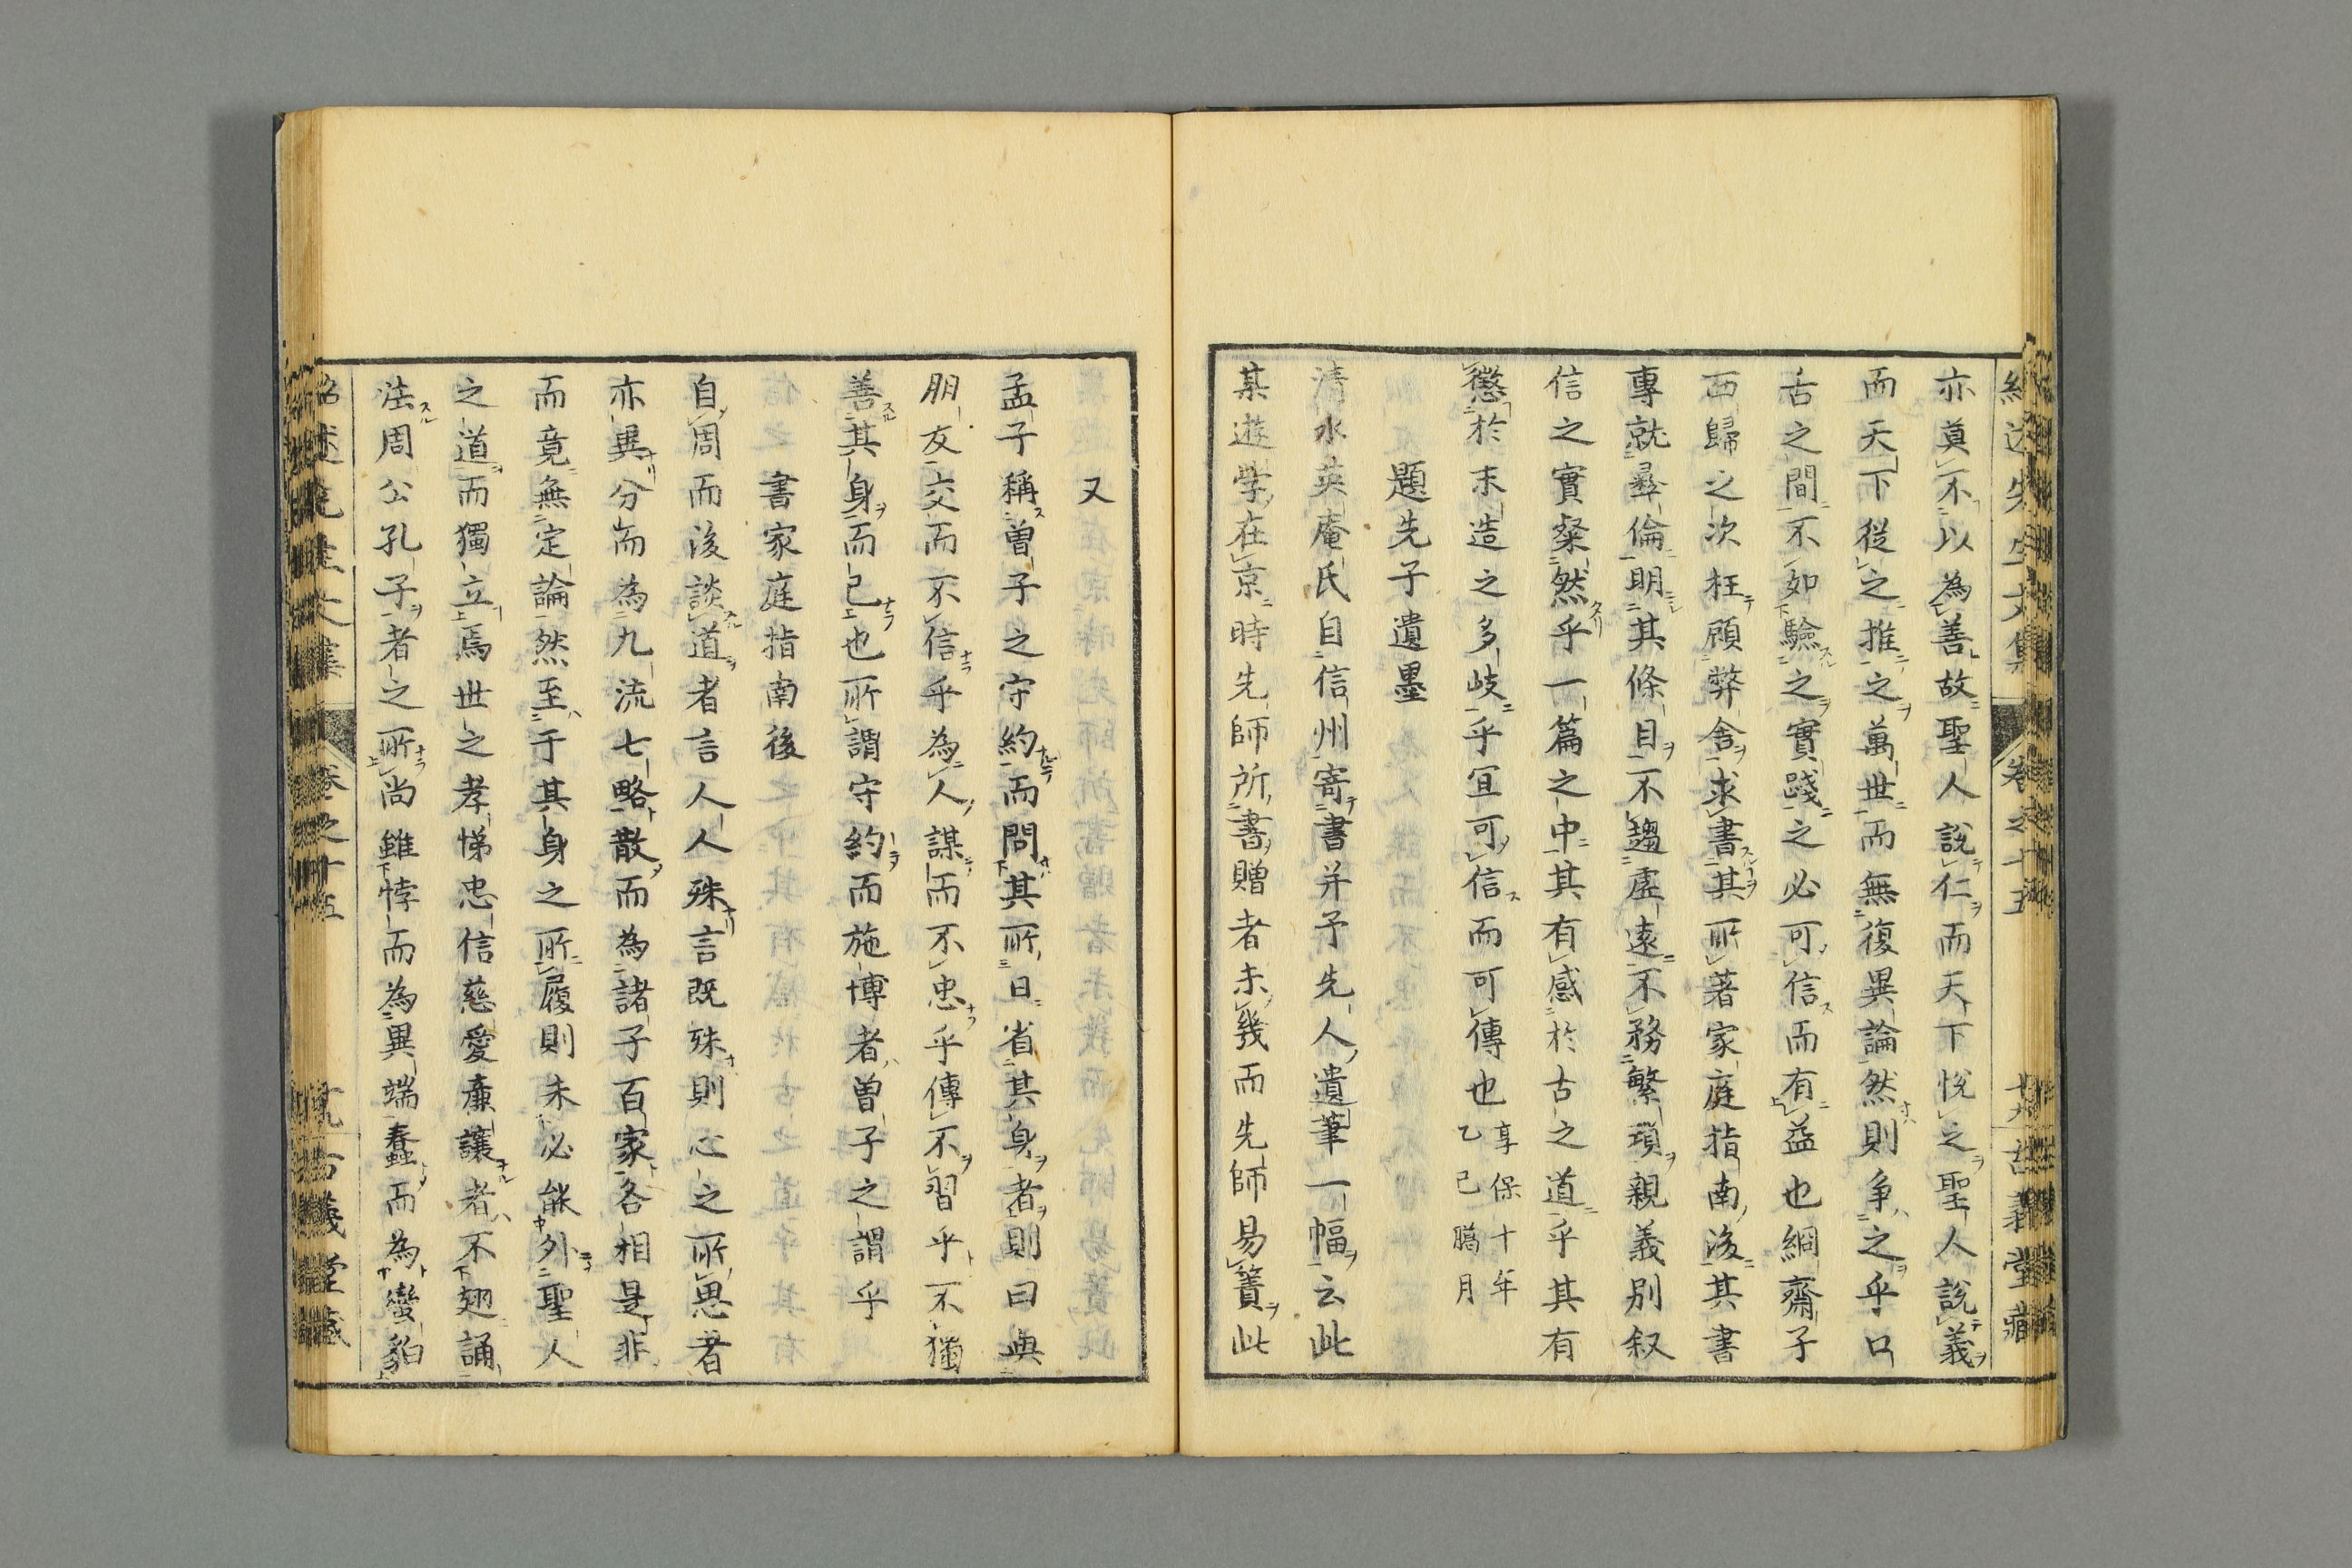 亦莫不以為善故聖人說仁而天下悅之聖人說義
而天下從之推之萬世而無復異論然則爭之乎口
舌之間不如驗之實踐之必可信而有益也絅齋子
西歸之次枉顧弊舍求書其所著家庭指南後其書
專就彞倫明其條目不趨虛遠不務繁瑣親義別叙
信之實粲然乎一篇之中其有感於古之道乎其有
懲於末造之多岐乎宜可信而可傳也享保十年乙巳臈月
題先子遺墨
清水英庵氏自信州寄書并予先人遺筆一幅云此
某遊學在京時先師所書贈者未幾而先師易簀此
又
孟子稱曽子之守約而問其所日省其身者則曰與
朋友交而不信乎為人謀而不忠乎傳不習乎不獨
善其身而已也所謂守約而施博者曽子之謂乎
書家庭指南後
自周而後談道者言人人殊言既殊則心之所思者
亦異分而為九流七略散而為諸子百家各相是非
而竟無定論然至于其身之所履則未必能外聖人
之道而獨立焉世之孝悌忠信慈愛廉讓者不翅誦
法周公孔子者之所尚雖悖而為異端蠢而為蠻貊
紹述先生文集 卷之十五 古義堂藏